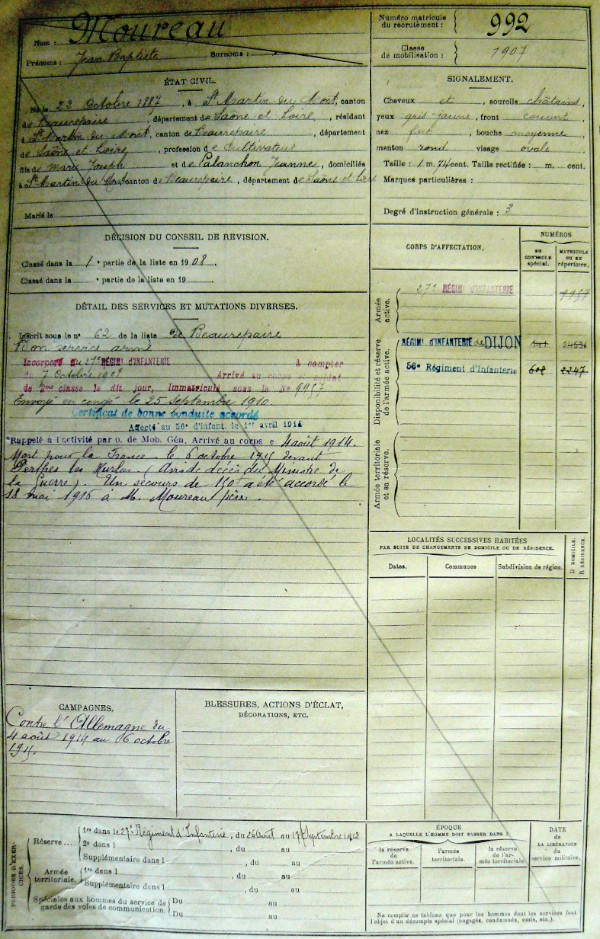 Nom : Moureau
Prénoms : Jean Baptiste Surnoms :
Numéro matricule du recrutement : 992
Classe de mobilisation : 1907
ÉTAT CIVIL.
Né le 23 Octobre 1887, à St Martin du Mont, canton
de Beaurepaire, département de Saône et Loire, résidant
à St Martin du Mont, canton de Beaurepaire, département
de Saône et Loire, profession de Cultivateur
fils de Marie Joseph et de Palanchon Jeanne, domiciliés
à St Martin du Mont, canton de Beaurepaire, département de Saône et Loire
Marié le
SIGNALEMENT.
Cheveux et, sourcils châtains
yeux gris jaune, front couvert
nez fort, bouche moyenne
menton rond, visage ovale
Taille : 1 m. 74 cent. Taille rectifiée : m. cent.
Marques particulières :
Degré d'instruction générale : 3
DÉCISION DU CONSEIL DE REVISION.
Classé dans la 1e partie de la liste en 1908
Classé dans la partie de la liste en 19
DÉTAIL DES SERVICES ET MUTATIONS DIVERSES.
Inscrit sous le n° 62 de la liste de Beaurepaire
Bon service armé
Incorporé au 27e RÉGIMENT D'INFANTERIE à compter
du 7 octobre 1908 Arrivé au corps et soldat
de 2me classe le dit jour, Immatriculé sous le No 9957
Envoyé en congé le 25 Septembre 1910
Certificat de bonne conduite accordé
Affecté au 56e d'Infant. le 1er avril 1914
Rappelé à l'activité par o. de Mob. Gén. Arrivé au corps le 4 août 1914.
Mort pour la France le 6 octobre 1915 devant
Perthes les Hurlus (Avis de décès du Ministre de
la Guerre). Un secours de 150f a été accordé le
18 mai 1916 à M. Moureau père.
CORPS D'AFFECTATION.
NUMÉROS
DU CONTROLE spécial.
MATRICULE OU DU répertoire.
Armée active.
27e RÉGIMENT D'INFANTERIE 9957
Disponibilité et réserve de l'armée active.
RÉGIMt D'INFANTERIE de DIJON
56e Régiment d'Infanterie 2247
Armée territoriale et sa réserve.
LOCALITÉS SUCCESSIVES HABITÉES
PAR SUITE DE CHANGEMENTS DE DOMICILE OU DE RÉSIDENCE.
Dates. Communes Subdivision de région. D DOMICILE. R RÉSIDENCE.
CAMPAGNES.
Contre l'Allemagne du
4 août 1914 au 06 octobre
1915.
BLESSURES, ACTIONS D'ÉCLAT,
DÉCORATIONS, ETC.
PÉRIODES D'EXERCICES
Réserve
1re dans le 27e Régiment d'Infanterie, du 26 Août au 17 Septembre 1912
2e dans l , du au
Supplémentaire dans l , du au
Armée territoriale.
1re dans l , du au
Supplémentaire dans l , du au
Spéciales aux hommes du service de garde des voies de communication.
Du au
Du au
ÉPOQUE
A LAQUELLE L'HOMME DOIT PASSER DANS :
la réserve de l'armée active.
l'armée territoriale.
la réserve de l'armée territoriale.
DATE
DE LA LIBÉRATION
du service militaire.
Ne remplir ce tableau que pour les hommes dont les services font
l'objet d'un décompte spécial (engagés, condamnés, omis, etc.).